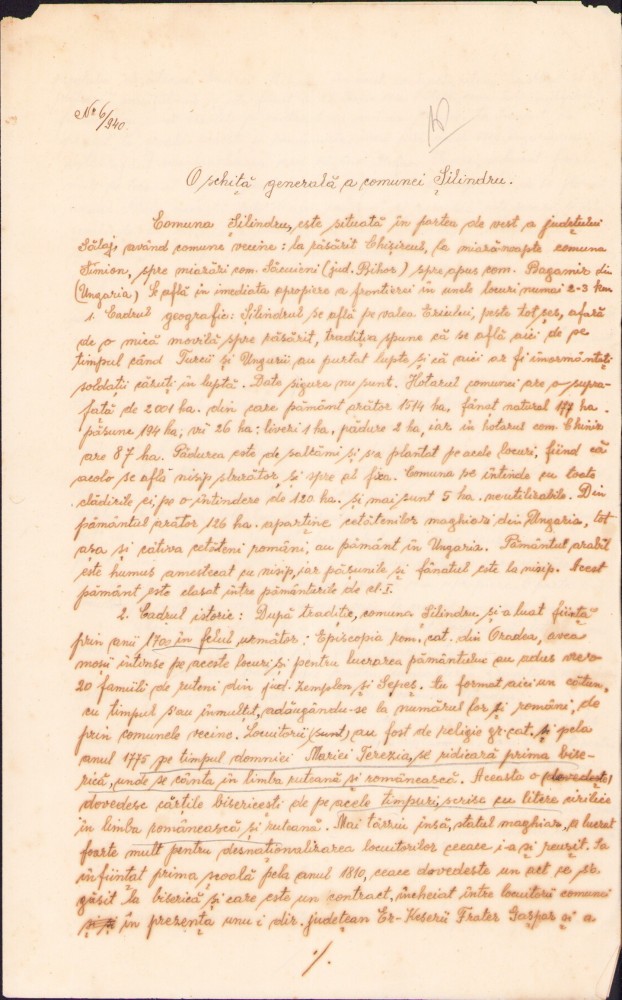 No 6/940.
O schiță generală a comunei Șilindru.
Comuna Șilindru, este situată în partea de vest a județului
Sălaj, având comune vecine: la răsărit Chișireul, la miazănoapte comuna
Simion, spre miazăzi com. Săcuieni (jud. Bihor) spre apus com. Bagamir din
(Ungaria) Se află în imediata apropiere a frontierei în unele locuri numai 2-3 km
1. Cadrul geografic: Șilindrul se află pe valea Eriului, peste tot șes, afară
de o mică movilă spre răsărit, tradiția spune că se află aici de pe
timpul când Turcii și Ungurii au purtat lupte și că aici ar fi înormântați
soldații căzuți în luptă. Date sigure nu sunt. Hotarul comunei are o supra-
față de 2001 ha. din care pământ arător 1514 ha, fânaț natural 177 ha.
pășune 194 ha; vii 26 ha; livezi 1 ha, pădure 2 ha, iar în hotarul com.
are 87 ha. Pădurea este de salcâmi și s'a plantat pe acele locuri, fiind că
acolo se află nisip sburător, și spre al fixa. Comuna se întinde cu toate
clădirile ei, pe o întindere de 120 ha. și mai sunt 5 ha. neutilizabile. Din
pământul arător 126 ha. aparține cetățenilor maghiari din Ungaria, tot
așa și câtiva cetățeni români, au pământ în Ungaria. Pământul arabil
este humus amestecat cu nisip, iar pășunile și fânațul este la nisip. Acest
pământ este clasat între pământurile de cl. I.
2. Cadrul istoric: După tradiție, comuna Șilindru, și-a luat ființă
prin anii 1700 în felul următor: Episcopia rom. cat. din Oradea, avea
moșii intinse pe aceste locuri și pentru lucrarea pământului au adus vreo
20 familii de ruteni din jud. Zemplen și Sepeș. Au format aici un cătun,
cu timpul s'au înmulțit, adăugându-se la numărul lor și români, de
prin comunele vecine. Locuitorii (sunt) au fost de religie gr. cat. și pela
anul 1775 pe timpul domniei Mariei Terezia, se ridicară prima bise-
rică, unde se cânta în limba ruteană și românească. Aceasta o (dovedește)
dovedesc cărțile bisericești de pe acele timpuri, scrise cu litere cirilice
în limba românească și ruteană. Mai târziu însă, statul maghiar, a lucrat
foarte mult pentru desnaționalizarea locuitorilor ceeace i-a și reușit. Sa
înființat prima școală pela anul 1810, ceace dovedește un act ce se
găsit la biserică și care este un contract, încheiat între locuitorii comunei
în prezența unui dir. județean Er-Keserü Frater Gașpar și a
./.